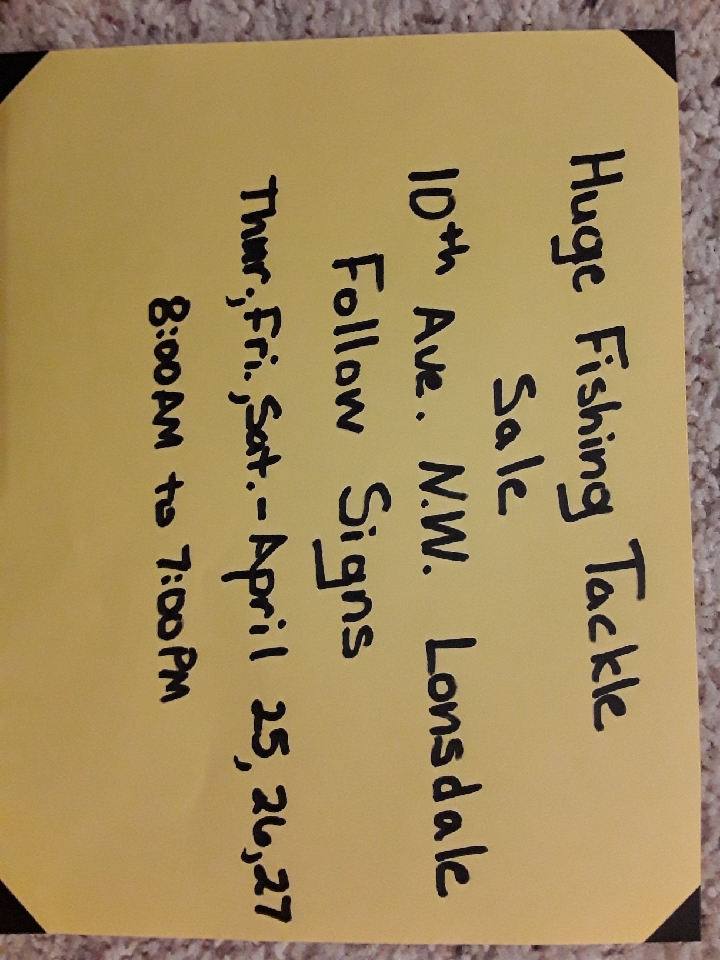 Huge Fishing Tackle
Sale
10th Ave. N.W. Lonsdale
Follow Signs
Thur., Fri., Sat. - April 25, 26, 27
8:00 AM to 7:00 PM